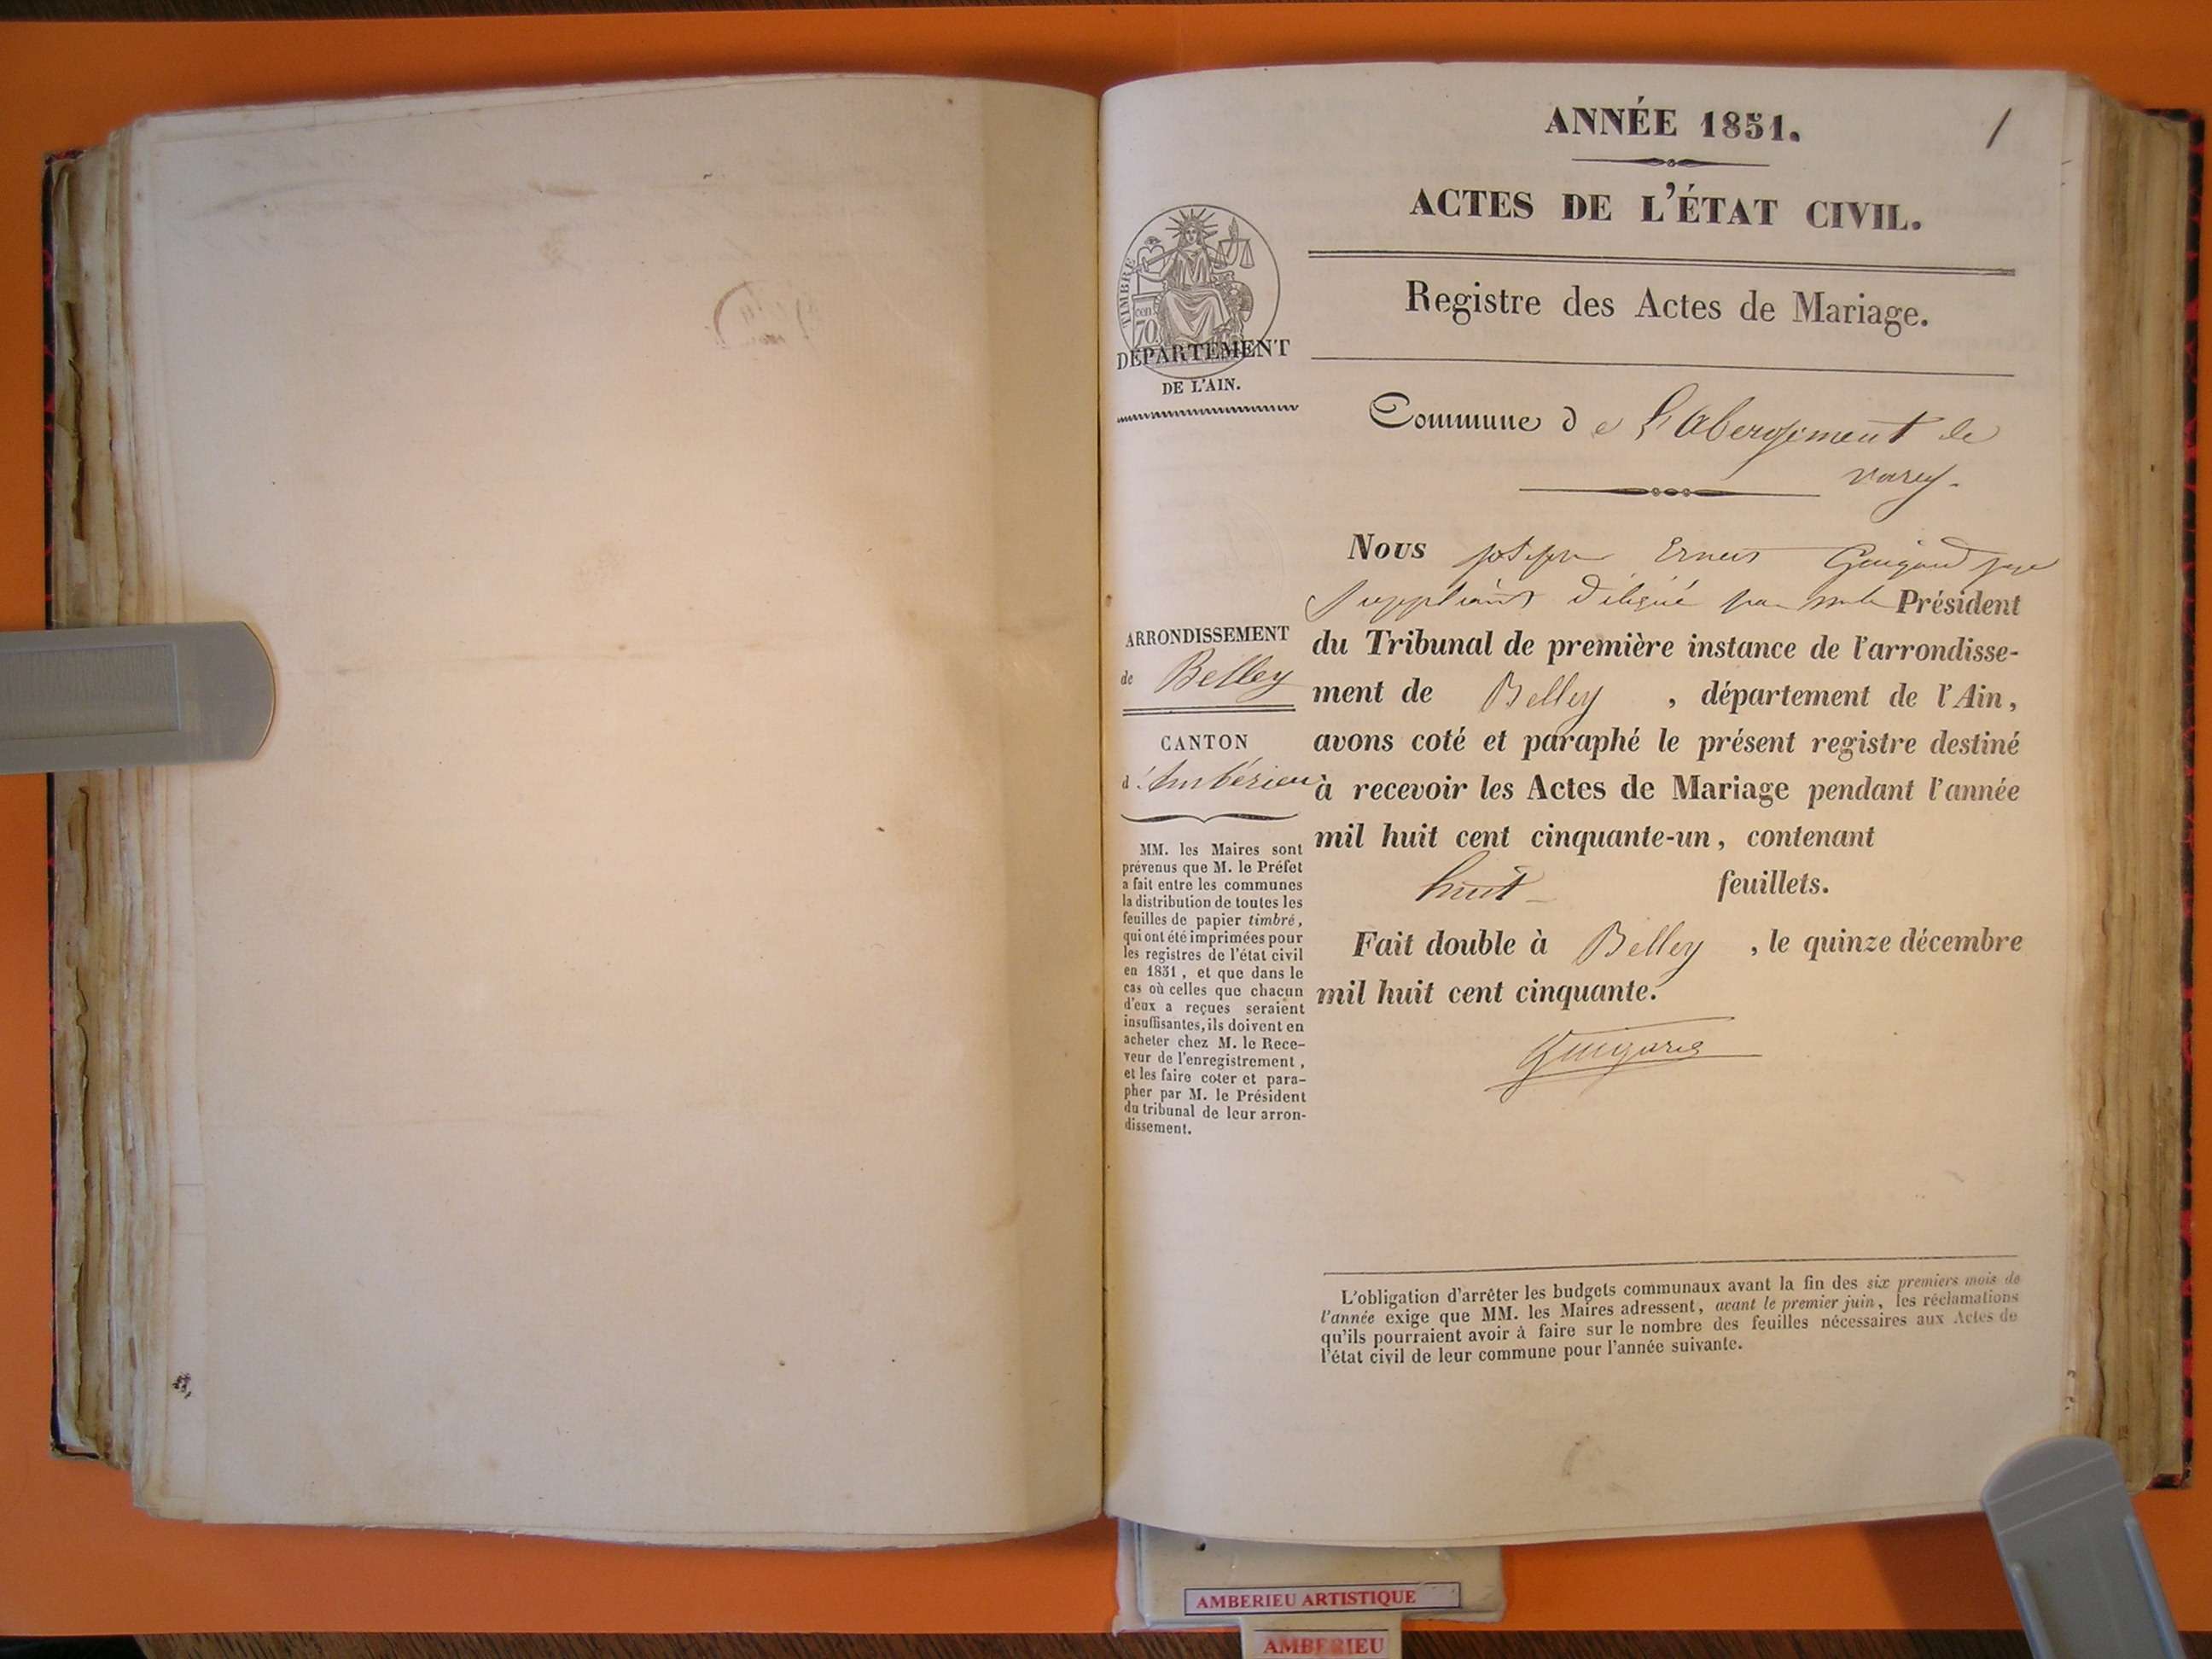 1
ANNÉE 1851.
ACTES DE L'ÉTAT CIVIL.
Registre des Actes de Mariage.
TIMBRE
cen
70.
DÉPARTEMENT
DE L'AIN.
Commune de L'Abergement de
varey.
ARRONDISSEMENT
de Belley
CANTON
d'Ambérieu
MM. les Maires sont
prévenus que M. le Préfet
a fait entre les communes
la distribution de toutes les
feuilles de papier timbré,
qui ont été imprimées pour
les registres de l'état civil
en 1851, et que dans le
cas où celles que chacun
d'eux a reçues seraient
insuffisantes, ils doivent en
acheter chez M. le Rece-
veur de l'enregistrement,
et les faire coter et para-
pher par M. le Président
du tribunal de leur arron-
dissement.
Nous joseph Ernest juge
suppléant délégué par Président
du Tribunal de première instance de l'arrondisse-
ment de Belley , département de l'Ain,
avons coté et paraphé le présent registre destiné
à recevoir les Actes de Mariage pendant l'année
mil huit cent cinquante-un, contenant
huit feuillets.
Fait double à Belley , le quinze décembre
mil huit cent cinquante.
L'obligation d'arrêter les budgets communaux avant la fin des six premiers mois de
l'année exige que MM. les Maires adressent, avant le premier juin, les réclamations
qu'ils pourraient avoir à faire sur le nombre des feuilles nécessaires aux Actes de
l'état civil de leur commune pour l'année suivante.
AMBERIEU ARTISTIQUE
AMBERIEU